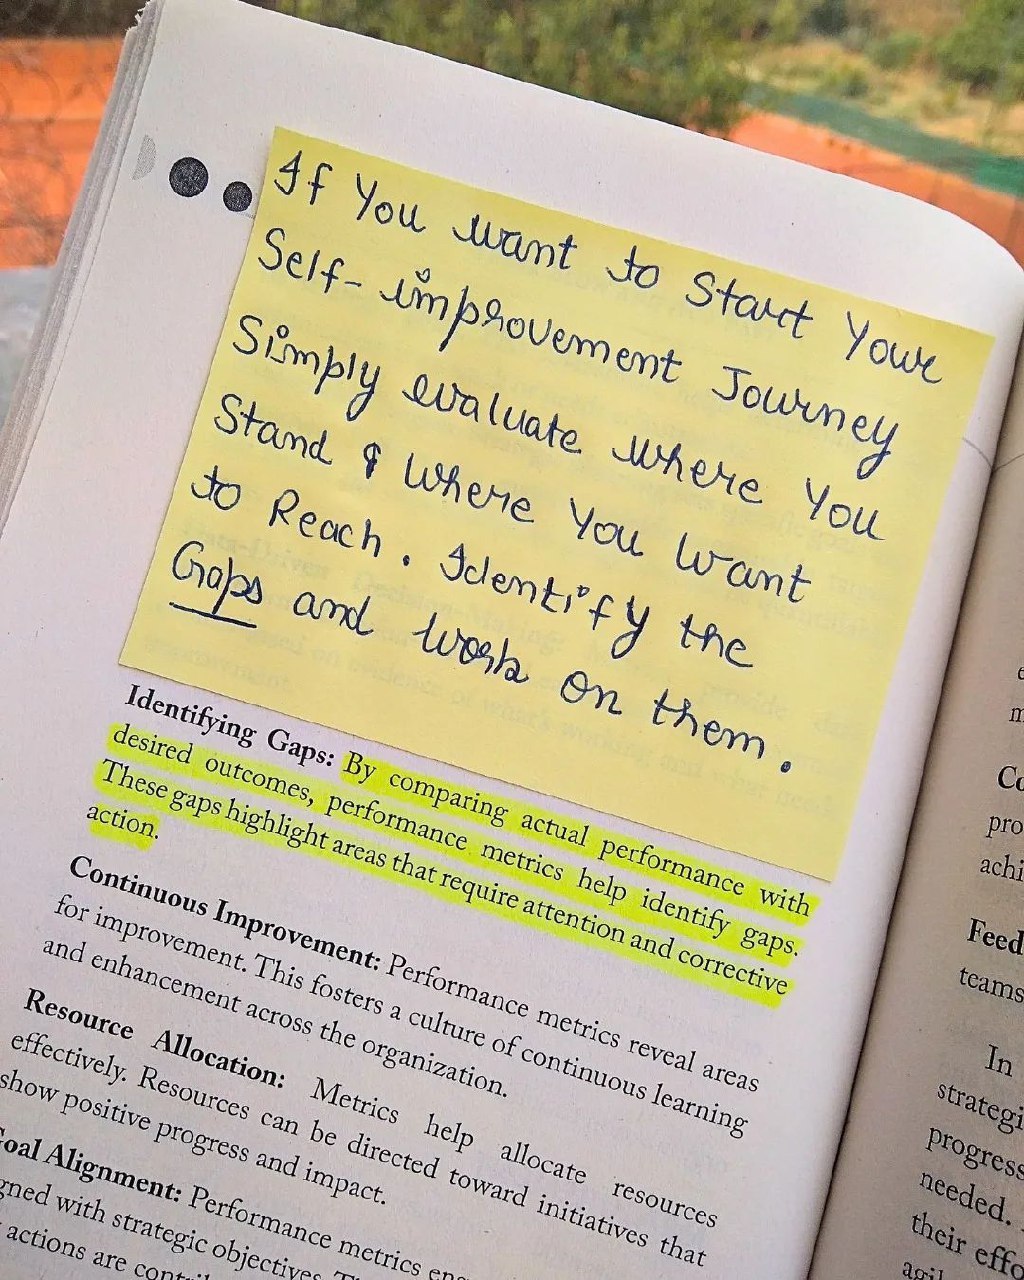 If You want to Start Your
Self-improvement Journey
Simply evaluate where You
Stand & Where You Want
to Reach. Identify the
Gaps and Work on them.
Identifying Gaps: By comparing actual performance with
desired outcomes, performance metrics help identify gaps.
These gaps highlight areas that require attention and corrective
action.
Continuous Improvement: Performance metrics reveal areas
for improvement. This fosters a culture of continuous learning
and enhancement across the organization.
Resource Allocation: Metrics help allocate resources
effectively. Resources can be directed toward initiatives that
show positive progress and impact.
Goal Alignment: Performance metrics
with strategic objectives.
actions are
Feed
teams
In
strategi
progress
needed.
their